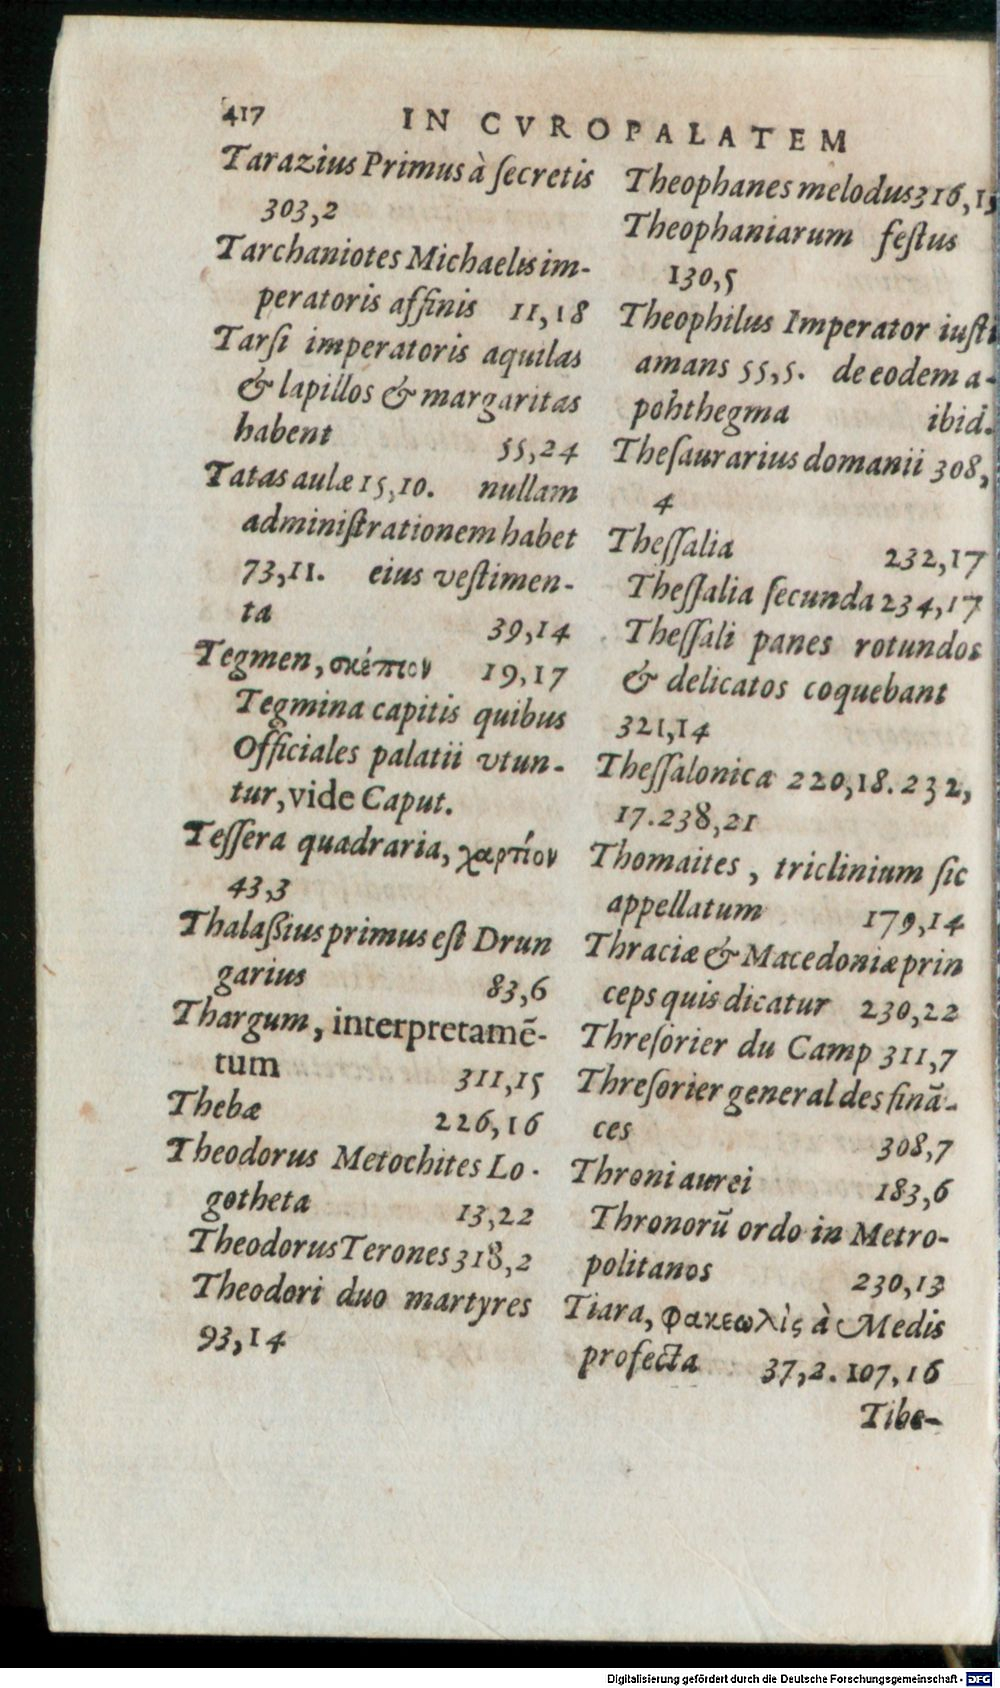 417
IN CVROPALATEM
Tarazius Primus à ſecretis
303,2
Tarchaniotes Michaelis im-
peratoris affinis 11,18
Tarſi imperatoris aquilas
& lapillos & margaritas
habent 55,24
Tatas aulæ 15,10. nullam
adminiſtrationem habet
73,11. eius veſtimen-
ta 39,14
Tegmen, σκέπιον 19,17
Tegmina capitis quibus
Officiales palatii vtun-
tur, vide Caput.
Teſſera quadraria, χαρτίον
43,3
Thalaßius primus eſt Drun
garius 83,6
Thargum, interpretamē-
tum 311,15
Thebæ 226,16
Theodorus Metochites Lo-
gotheta 13,22
Theodorus Terones 318,2
Theodori duo martyres
93,14
Theophanes melodus 316,15
Theophaniarum feſtus
130,5
Theophilus Imperator iuſti
amans 55,5. de eodem a-
pohthegma ibid.
Theſaurarius domanii 308,
4
Theſſalia 232,17
Theſſalia ſecunda 234,17
Theſſali panes rotundos
& delicatos coquebant
321,14
Theſſalonica 220,18. 232,
17. 238,21
Thomaites, triclinium ſic
appellatum 179,14
Thraciæ & Macedoniæ prin
ceps quis dicatur 230,22
Threſorier du Camp 311,7
Threſorier general des finā-
ces 308,7
Throni aurei 183,6
Thronorū ordo in Metro-
politanos 230,13
Tiara, φακεωλὶς à Medis
profecta 37,2. 107,16
Tibe-
Digitalisierung gefördert durch die Deutsche Forschungsgemeinschaft - DFG